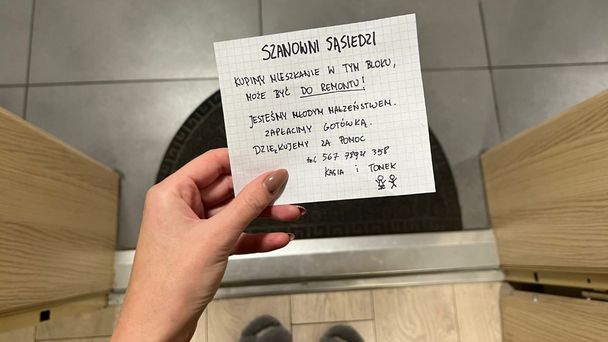 SZANOWNI SĄSIEDZI
KUPIMY MIESZKANIE W TYM BLOKU,
MOŻE BYĆ DO REMONTU!
JESTEŚMY MŁODYM MAŁŻEŃSTWEM.
ZAPŁACIMY GOTÓWKĄ.
DZIĘKUJEMY ZA POMOC
tel 567 7894 358
KASIA i TOMEK